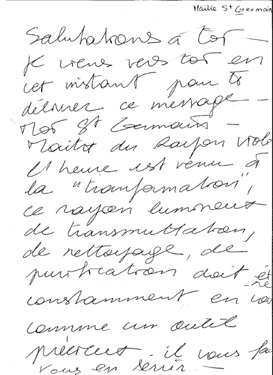 Maître St Germain
Salutations à toi –
je viens vers toi en
cet instant pour te
délivrer ce message –
Moi St Germain –
Maître du Rayon Viole
L'heure est venue à
la "transformation",
ce rayon lumineux
de transmutation,
de nettoyage, de
purification doit êt
re
constamment en
comme un outil
précieux il vous fa
vous en servir. –